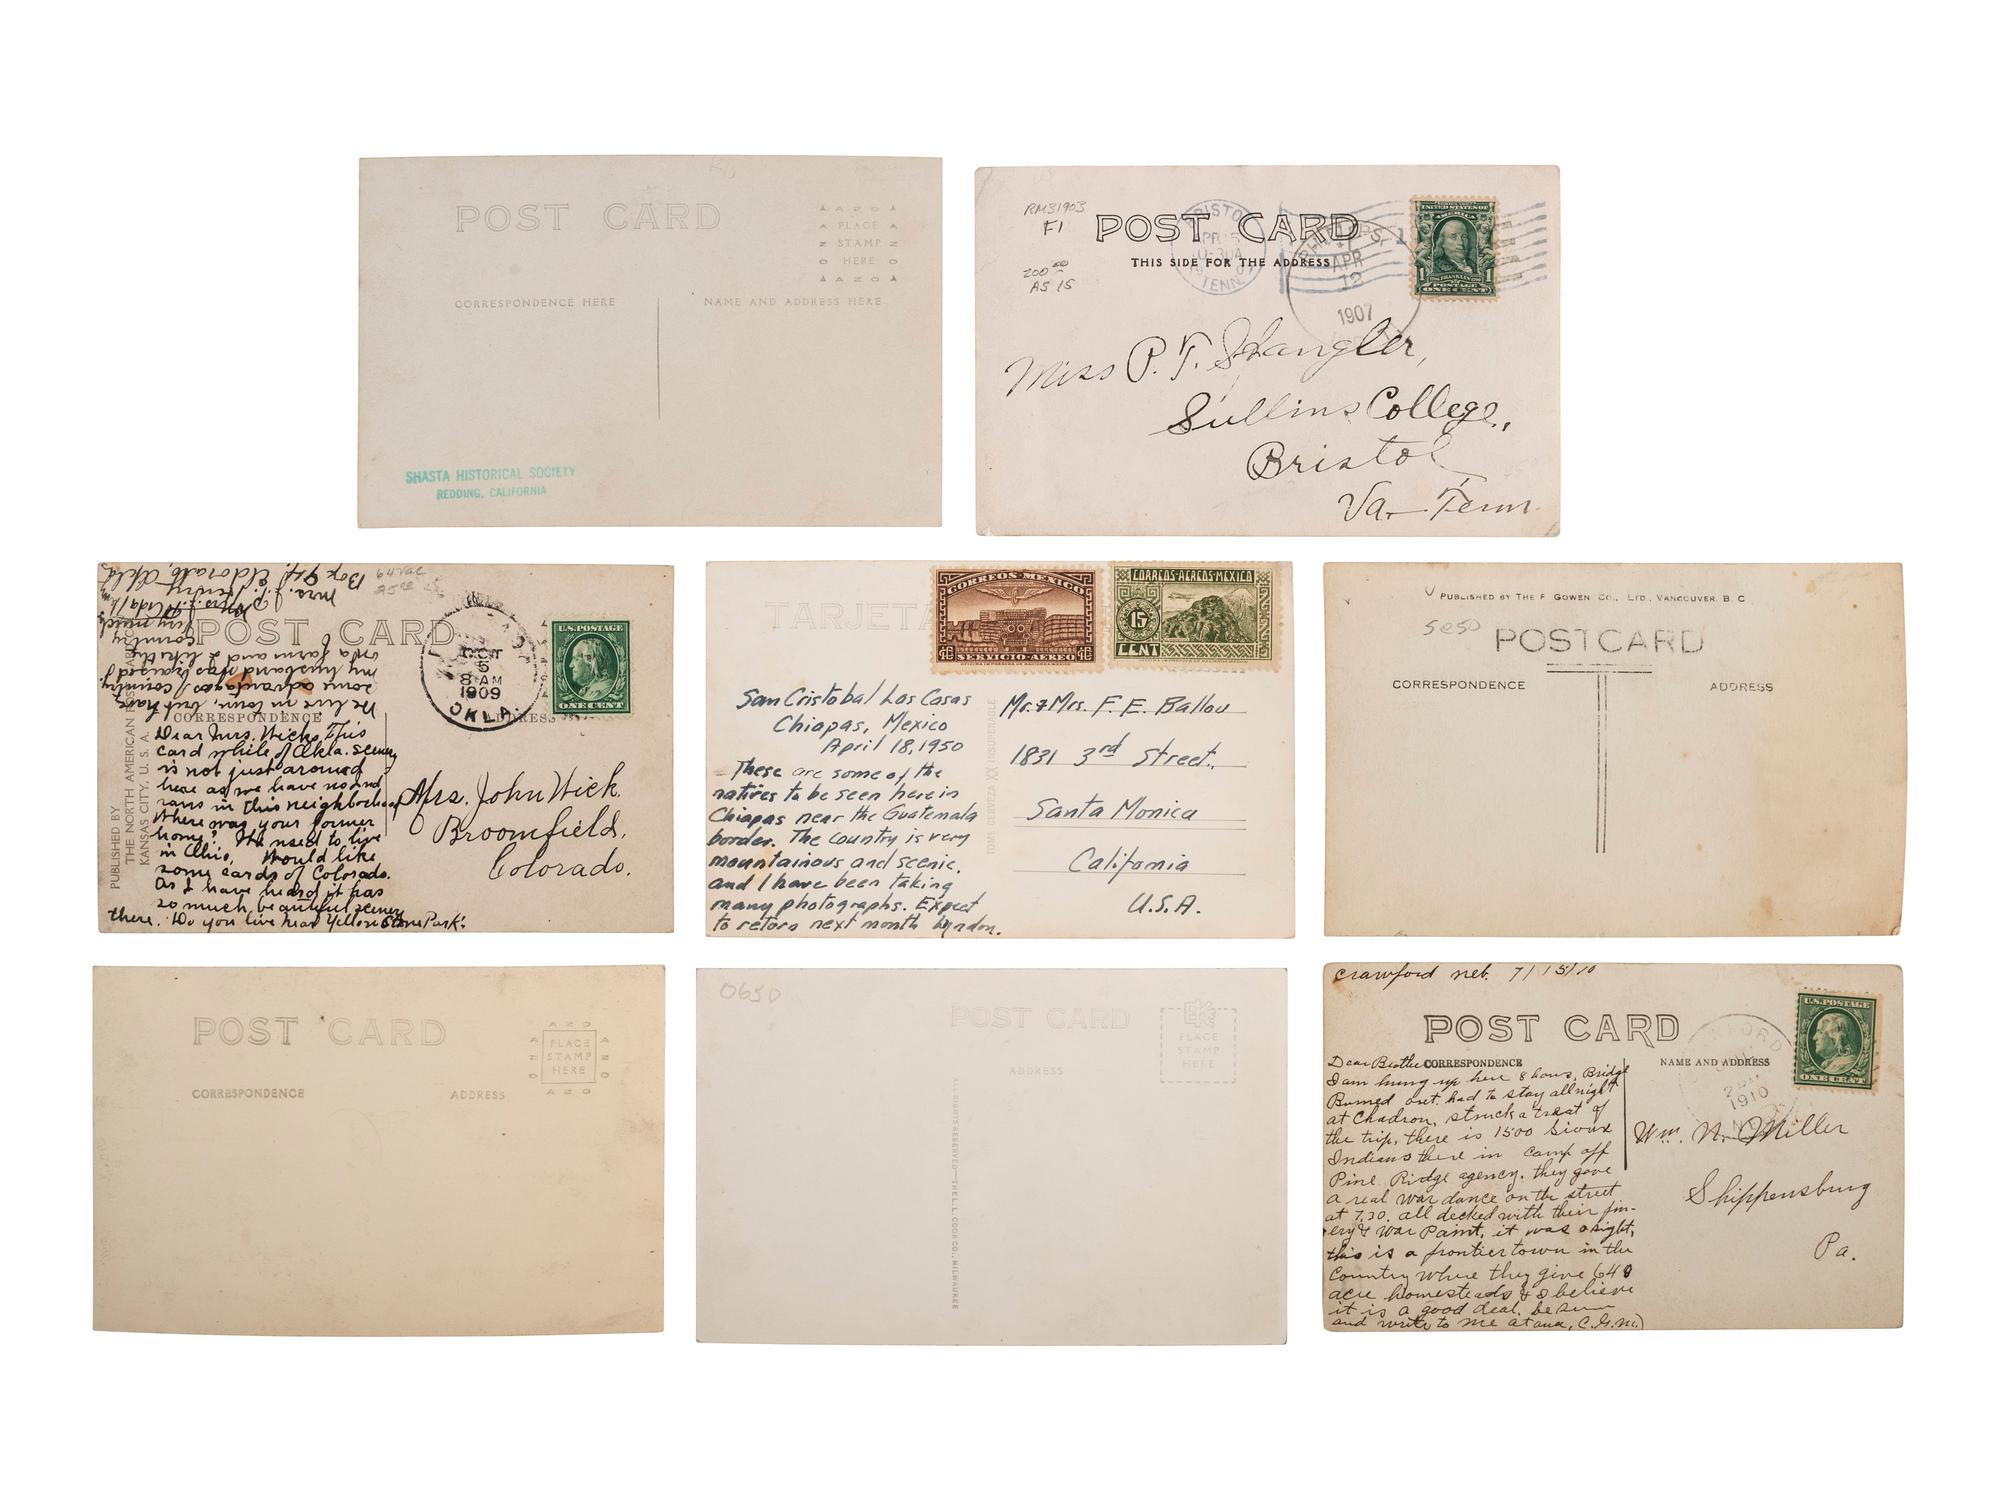 POST CARD
A Z O
PLACE
STAMP
HERE
A Z O
CORRESPONDENCE HERE
NAME AND ADDRESS HERE
SHASTA HISTORICAL SOCIETY
REDDING, CALIFORNIA
RM31903
F1
200 00
AS 15
POST CARD
THIS SIDE FOR THE ADDRESS
TENN.
APR
12
1907
UNITED STATES OF
AMERICA
1 1
POSTAGE
ONE CENT
Miss P. T. Spangler,
Sullins College,
Bristol
Va. Tenn
Box 94, Eldorado, Okla
Mrs. J. J. Hendry
very much
county
on a farm and I like the
my husband was raised
some advantages of country.
We live in town, but have
POST CARD
CORRESPONDENCE
ADDRESS
OCT
5
8 AM
1909
OKLA.
U.S. POSTAGE
ONE CENT
PUBLISHED BY
THE NORTH AMERICAN
KANSAS CITY, U. S. A.
Dear Mrs. Wicks, This
card while of Okla. scenery
is not just around
here as we have no
in this neighborhood
Where was your former
home? We used to live
in Ohio. Would like
some cards of Colorado.
As I have heard it has
so much beautiful scenery
there. Do you live near Yellowstone Park?
Mrs. John Wick.
Broomfield,
Colorado.
TARJETA
CORREOS MEXICO
SERVICIO AEREO
CORREOS AEREOS MEXICO
15
CENT
San Cristobal Las Casas
Chiapas, Mexico
April 18, 1950
These are some of the
natives to be seen here in
Chiapas near the Guatemala
border. The country is very
mountainous and scenic.
and I have been taking
many photographs. Expect
to return next month Lyndon.
TOME CERVEZA XX INSUPERABLE
Mr. & Mrs. F. E. Ballou
1831 3rd Street.
Santa Monica
California
U.S.A.
PUBLISHED BY THE F GOWEN CO., LTD., VANCOUVER. B. C
5e50
POSTCARD
CORRESPONDENCE
ADDRESS
POST CARD
CORRESPONDENCE
ADDRESS
A Z O
PLACE
STAMP
HERE
A Z O
0650
POST CARD
ADDRESS
EKC
PLACE
STAMP
HERE
ALL RIGHTS RESERVED—THE L. L. COOK CO., MILWAUKEE
Crawford Neb. 7/15/10
POST CARD
CORRESPONDENCE
NAME AND ADDRESS
1910
U.S. POSTAGE
ONE CENT
Dear Brother
I am hung up here 8 hours, Bridge
Burned out. had to stay all night
at Chadron, struck a treat of
the trip, there is 1500 Sioux
Indians there in camp off
Pine Ridge agency. they gave
a real war dance on the street
at 7.30. all decked with their fin-
ery & War Paint, it was a sight,
this is a frontier town in the
Country where they give 640
acre homesteads & I believe
it is a good deal. be sure
and write to me at C.G.M.
Wm. N. Miller
Shippensburg
Pa.